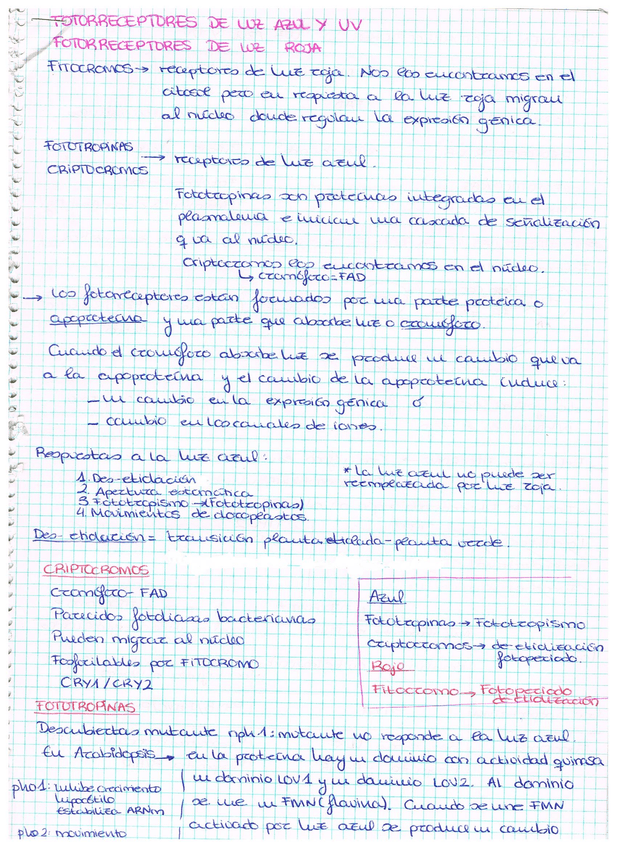 FOTORRECEPTORES DE LUZ AZUL Y UV
FOTORRECEPTORES DE LUZ ROJA
FITOCROMOS → receptores de luz roja. Nos los encontramos en el
citosol pero en respuesta a la luz roja migran
al núcleo donde regulan la expresión génica.
FOTOTROPINAS
CRIPTOCROMOS → receptores de luz azul.
Fototropinas son proteínas integradas en el
plasmalema e inician una cascada de señalización
q va al núcleo.
Criptocromos los encontramos en el núcleo.
↳ cromóforo=FAD
→ Los fotorreceptores están formados por una parte proteica o
apoproteína y una parte que absorbe luz o cromóforo.
Cuando el cromóforo absorbe luz se produce un cambio que va
a la apoproteína y el cambio de la apoproteína induce:
- un cambio en la expresión génica ó
- cambio en los canales de iones.
Respuestas a la luz azul:
1. Des-etiolación
2. Apertura estomática
3. Fototropismo → (Fototropinas)
4. Movimientos de cloroplastos.
* La luz azul no puede ser
reemplazada por luz roja.
Des-etiolación = transición planta etiolada-planta verde.
CRIPTOCROMOS
Cromóforo - FAD
Parecidos fotoliasas bacterianas
Pueden migrar al núcleo
Fosforilables por FITOCROMO
CRY1/CRY2
Azul
Fototropinas → Fototropismo
Criptocromos → de-etiolización
fotoperiodo.
Rojo
Fitocromo → Fotoperiodo
de-etiolización
FOTOTROPINAS
Descubiertas mutante nph1: mutante no responde a la luz azul.
En Arabidopsis → en la proteína hay un dominio con actividad quinasa
un dominio LOV1 y un dominio LOV2. Al dominio
se une un FMN (flavina). Cuando se une FMN
activado por luz azul se produce un cambio
pho1: inhibe crecimiento
hipocótilo
estabiliza ARNm
pho2: movimiento